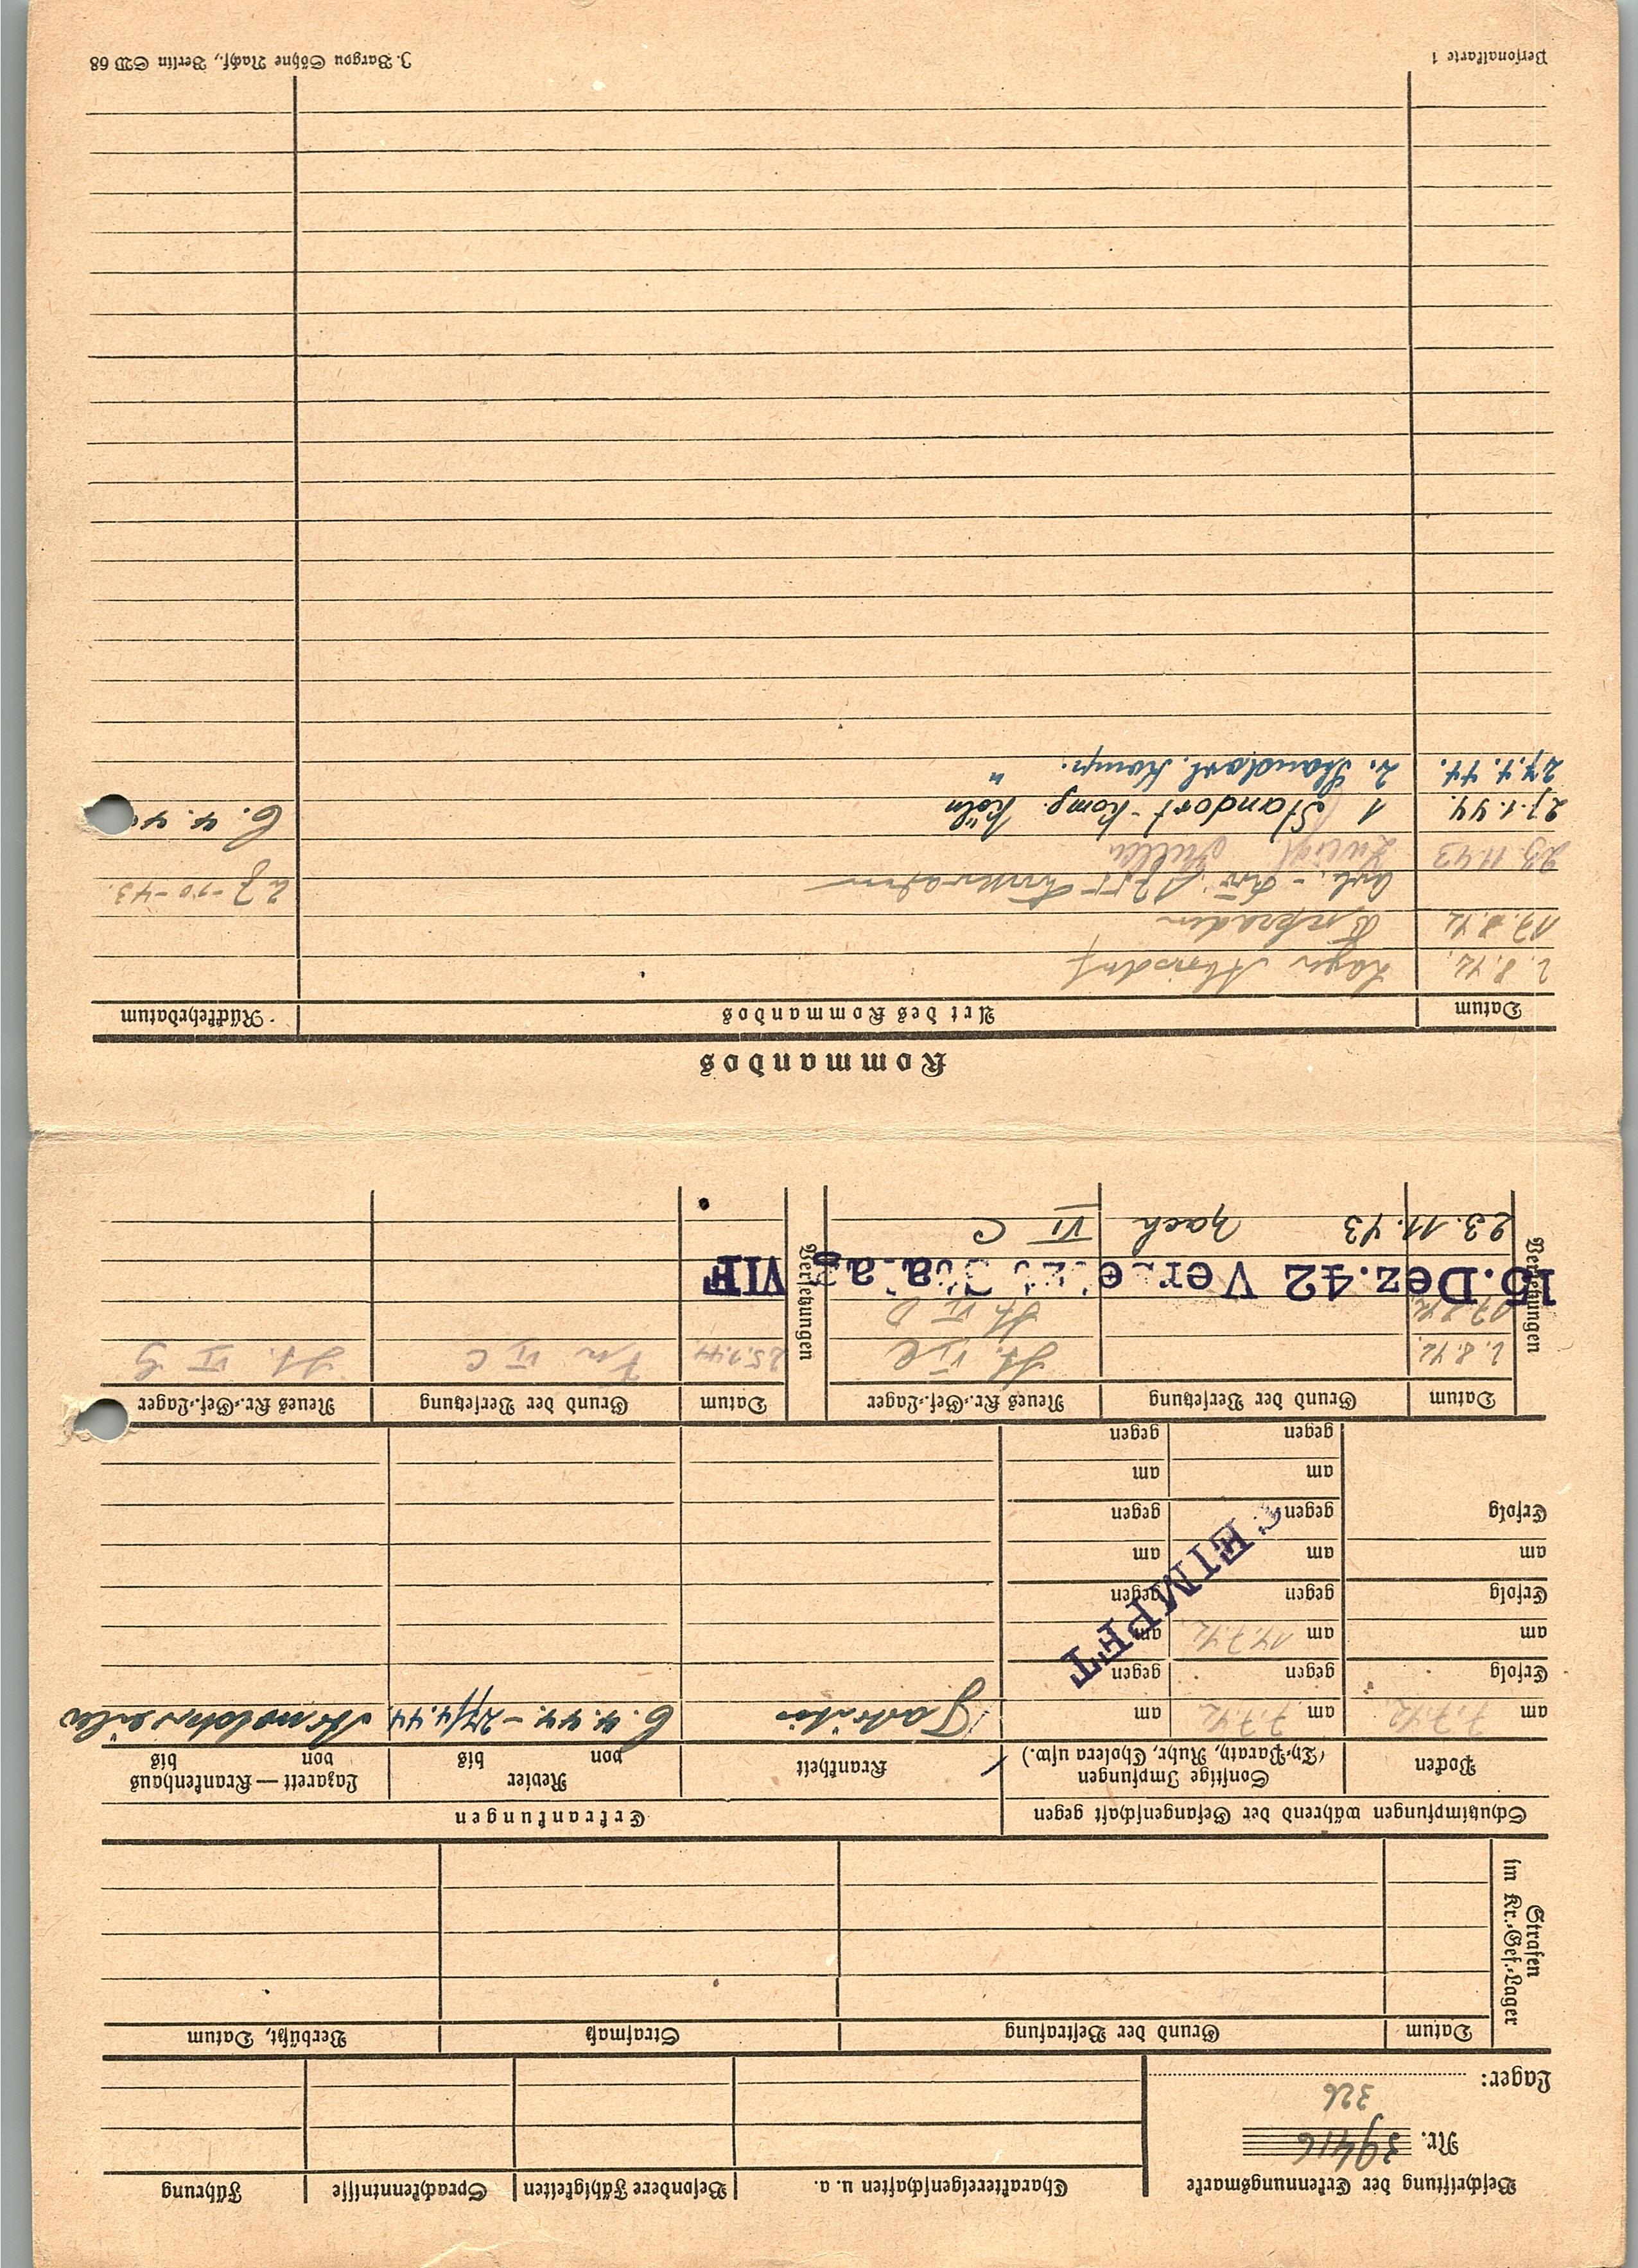 Beschriftung der Erkennungsmarke
Nr. 39416
326
Lager:
Charaktereigenschaften u. a.
Besondere Fähigkeiten
Sprachkenntnisse
Führung
Strafen
im Kr.-Gef.-Lager
Datum
Grund der Bestrafung
Strafmaß
Verbüßt, Datum
Schutzimpfungen während der Gefangenschaft gegen
Erkrankungen
Pocken
Sonstige Impfungen
(Ty.-Paraty, Ruhr, Cholera usw.)
Krankheit
Revier
von bis
Lazarett—Krankenhaus
von bis
am 7.7.42
am 7.7.42
am
6.4.44. – 27/4.44
Erfolg
gegen
gegen
am
am 14.7.42
am
Erfolg
gegen
gegen
am
am
am
Erfolg
gegen
gegen
am
am
gegen
gegen
GEIMPFT
Versetzungen
Datum
Grund der Versetzung
Neues Kr.-Gef.-Lager
Versetzungen
Datum
Grund der Versetzung
Neues Kr.-Gef.-Lager
2.8.42
St. VI C
25.1.44
VI C
St. VI G
17.8.42
St. VI D
15.Dez.42 Versetzt Stalag VIF
23.11.43 nach VI C
Kommandos
Datum
Art des Kommandos
Rückkehrdatum
2.8.42. Lager
17.8.42
27-10-43.
23.11.43
27.1.44. 1 Standort-Komp. Köln
6.4.44
27.4.44. 2. Standort. Komp. "
Personalkarte 1
J. Bargou Söhne Nachf., Berlin SW 68